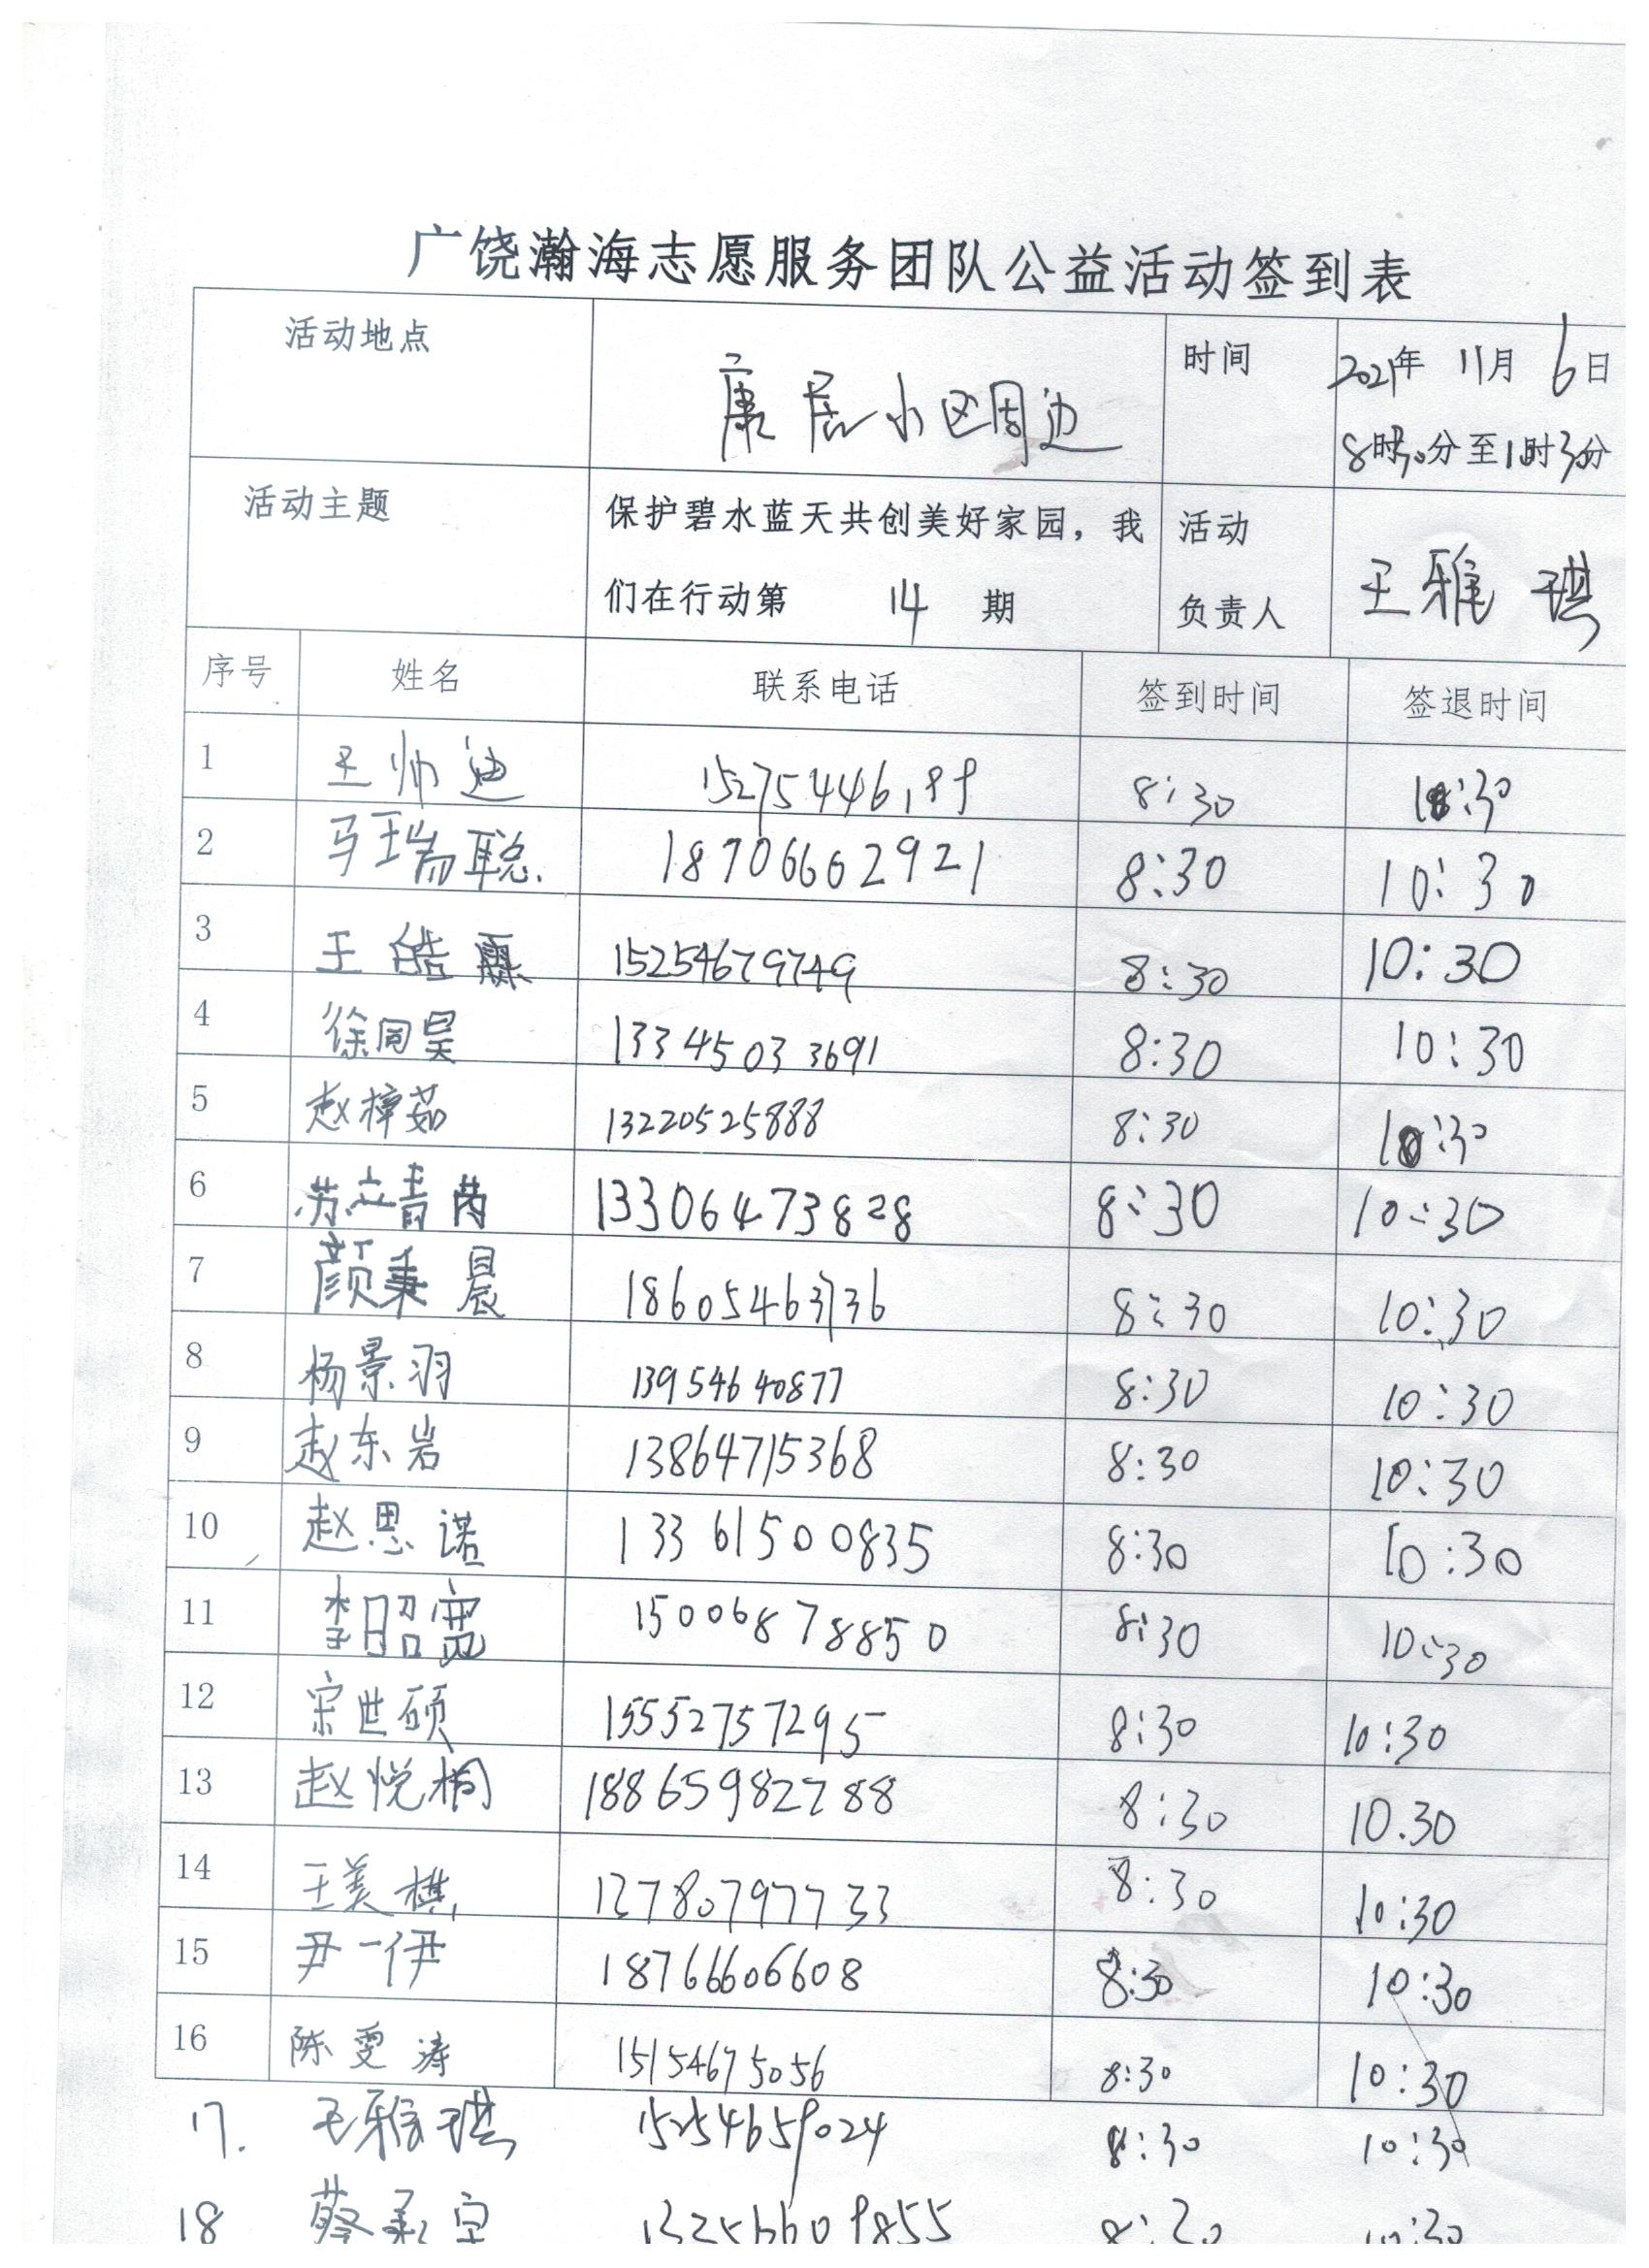 广饶瀚海志愿服务团队公益活动签到表
活动地点 康居小区周边 时间 2021年 11月 6日
8时30分至1时30分
活动主题 保护碧水蓝天共创美好家园，我 活动
们在行动第 14 期 负责人 王雅琪
序号 姓名 联系电话 签到时间 签退时间
1 王帅迪 8:30 10:30
2 马瑞聪 18706662921 8:30 10:30
3 王皓霖 15254679749 8:30 10:30
4 徐同昊 13345033691 8:30 10:30
5 赵梓茹 13220525888 8:30 10:30
6 苏 13306473828 8:30 10:30
7 颜秉晨 18605463736 8:30 10:30
8 杨景羽 13954640877 8:30 10:30
9 赵东岩 13864715368 8:30 10:30
10 赵思诺 13361500835 8:30 10:30
11 李昭宽 15006878850 8:30 10:30
12 宋世硕 15552757295 8:30 10:30
13 赵悦桐 18865982788 8:30 10.30
14 王美棋 13780797733 8:30 10:30
15 尹一伊 18766606608 8:30 10:30
16 陈雯涛 15154675056 8:30 10:30
17. 王雅琪 15254659024 8:30 10:30
18 蔡 8:30 10:30